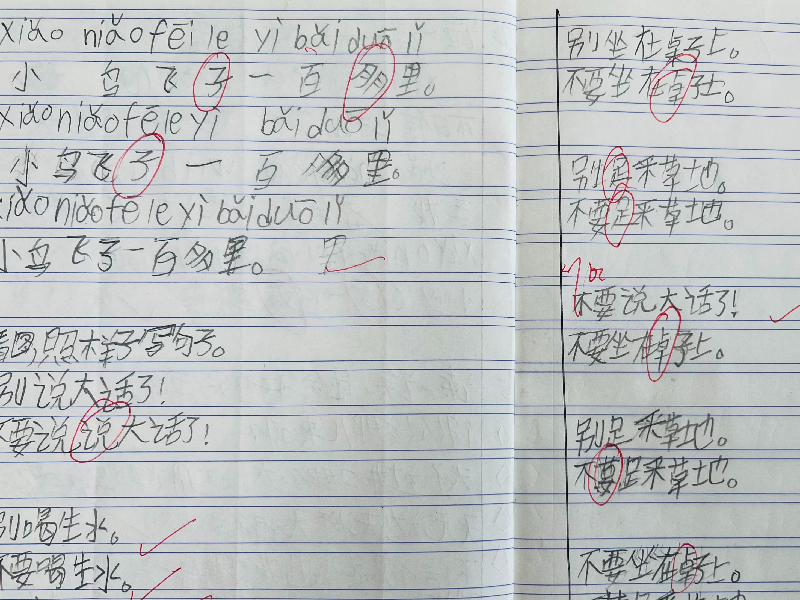 xiǎo niǎo fēi le yì bǎi duō lǐ
小鸟飞子一百多里。
xiǎo niǎo fēi le yì bǎi duō lǐ
小鸟飞子一百多里。
xiǎo niǎo fēi le yì bǎi duō lǐ
小鸟飞了一百多里。 里
看图,照样子写句子。
别说大话了!
不要说说大话了!
别喝生水。
不要喝生水。
别坐在桌子上。
不要坐在桌子上。
别足采草地。
不要足采草地。
不要说大话了!
不要坐在桌子上。
别足采草地。
不要足采草地。
不要坐在桌子上。